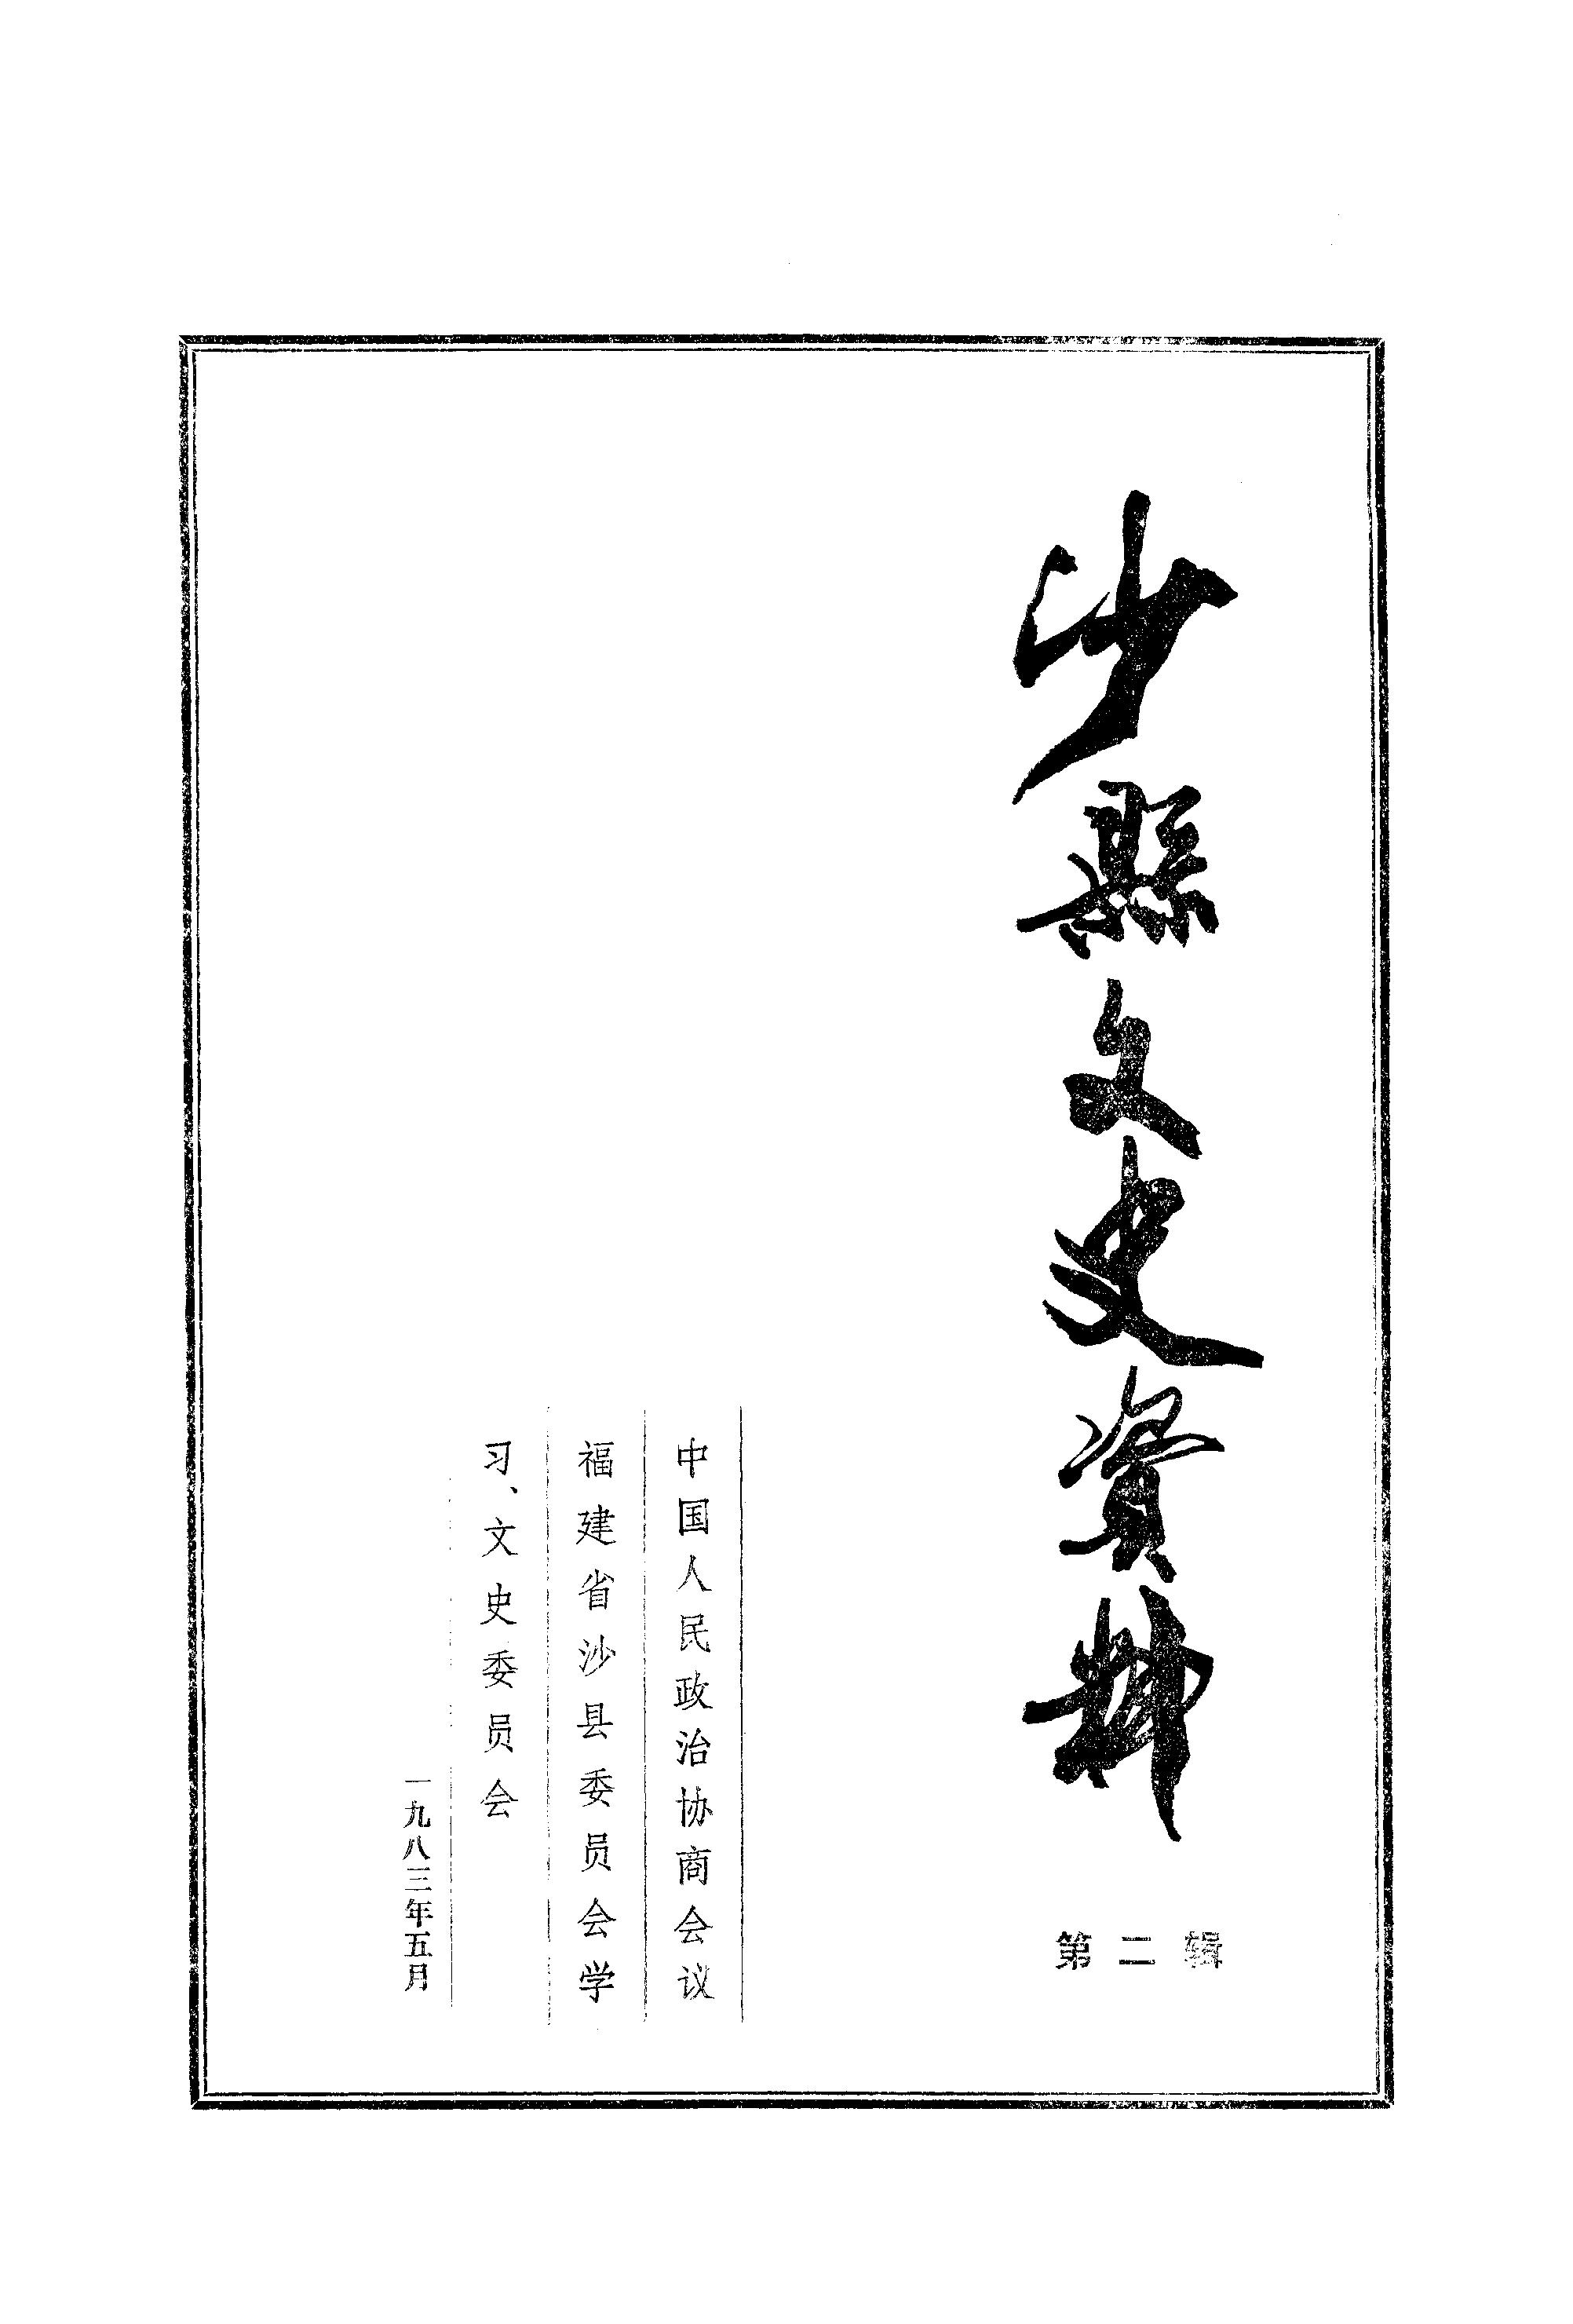 沙縣文史資料
第二辑
中国人民政治协商会议
福建省沙县委员会学
习、文史委员会
一九八三年五月